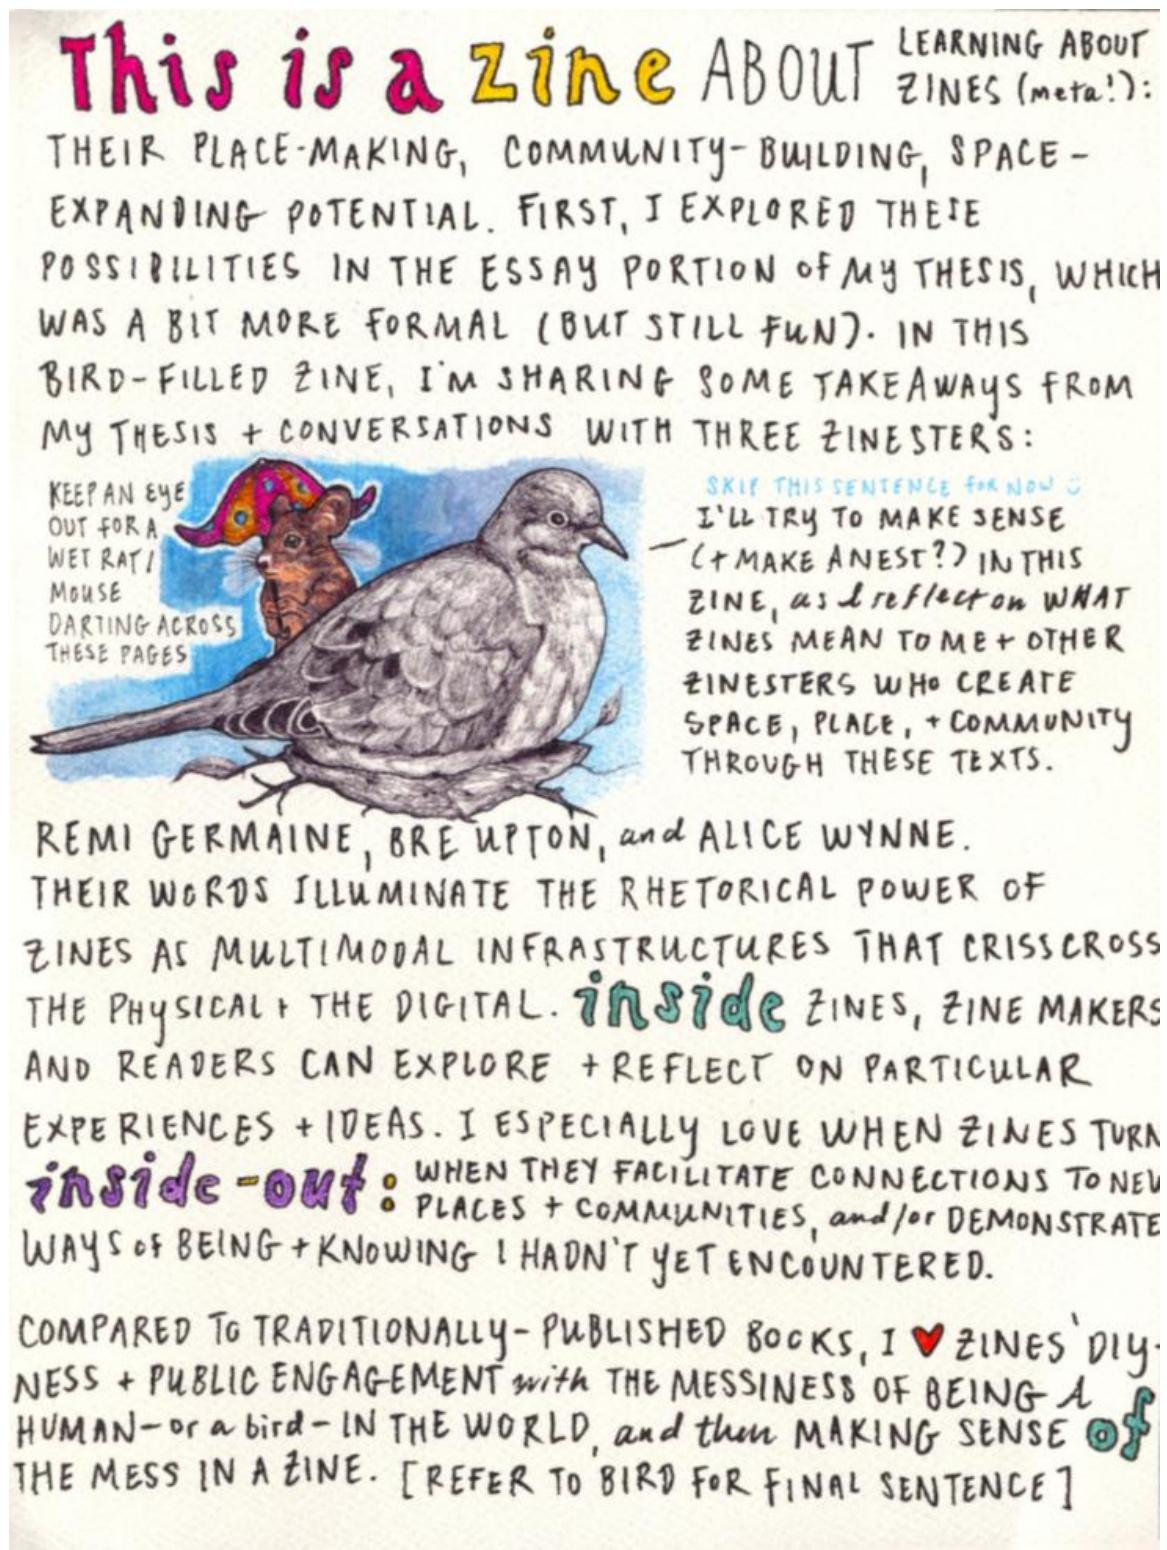 This is a zine ABOUT LEARNING ABOUT
ZINES (meta!):
THEIR PLACE-MAKING, COMMUNITY-BUILDING, SPACE-
EXPANDING POTENTIAL. FIRST, I EXPLORED THESE
POSSIBILITIES IN THE ESSAY PORTION OF MY THESIS, WHICH
WAS A BIT MORE FORMAL (BUT STILL FUN). IN THIS
BIRD-FILLED ZINE, I'M SHARING SOME TAKEAWAYS FROM
MY THESIS + CONVERSATIONS WITH THREE ZINESTERS:
KEEP AN EYE
OUT FOR A
WET RAT/
MOUSE
DARTING ACROSS
THESE PAGES
SKIP THIS SENTENCE FOR NOW
I'LL TRY TO MAKE SENSE
(+ MAKE A NEST?) IN THIS
ZINE, as I reflect on WHAT
ZINES MEAN TO ME + OTHER
ZINESTERS WHO CREATE
SPACE, PLACE, + COMMUNITY
THROUGH THESE TEXTS.
REMI GERMAINE, BRE UPTON, and ALICE WYNNE.
THEIR WORDS ILLUMINATE THE RHETORICAL POWER OF
ZINES AS MULTIMODAL INFRASTRUCTURES THAT CRISSCROSS
THE PHYSICAL + THE DIGITAL. inside ZINES, ZINE MAKERS
AND READERS CAN EXPLORE + REFLECT ON PARTICULAR
EXPERIENCES + IDEAS. I ESPECIALLY LOVE WHEN ZINES TURN
inside-out: WHEN THEY FACILITATE CONNECTIONS TO NEW
PLACES + COMMUNITIES, and/or DEMONSTRATE
WAYS OF BEING + KNOWING I HADN'T YET ENCOUNTERED.
COMPARED TO TRADITIONALLY-PUBLISHED BOOKS, I ♥ ZINES' DIY-
NESS + PUBLIC ENGAGEMENT with THE MESSINESS OF BEING A
HUMAN-or a bird-IN THE WORLD, and then MAKING SENSE of
THE MESS IN A ZINE. [REFER TO BIRD FOR FINAL SENTENCE]